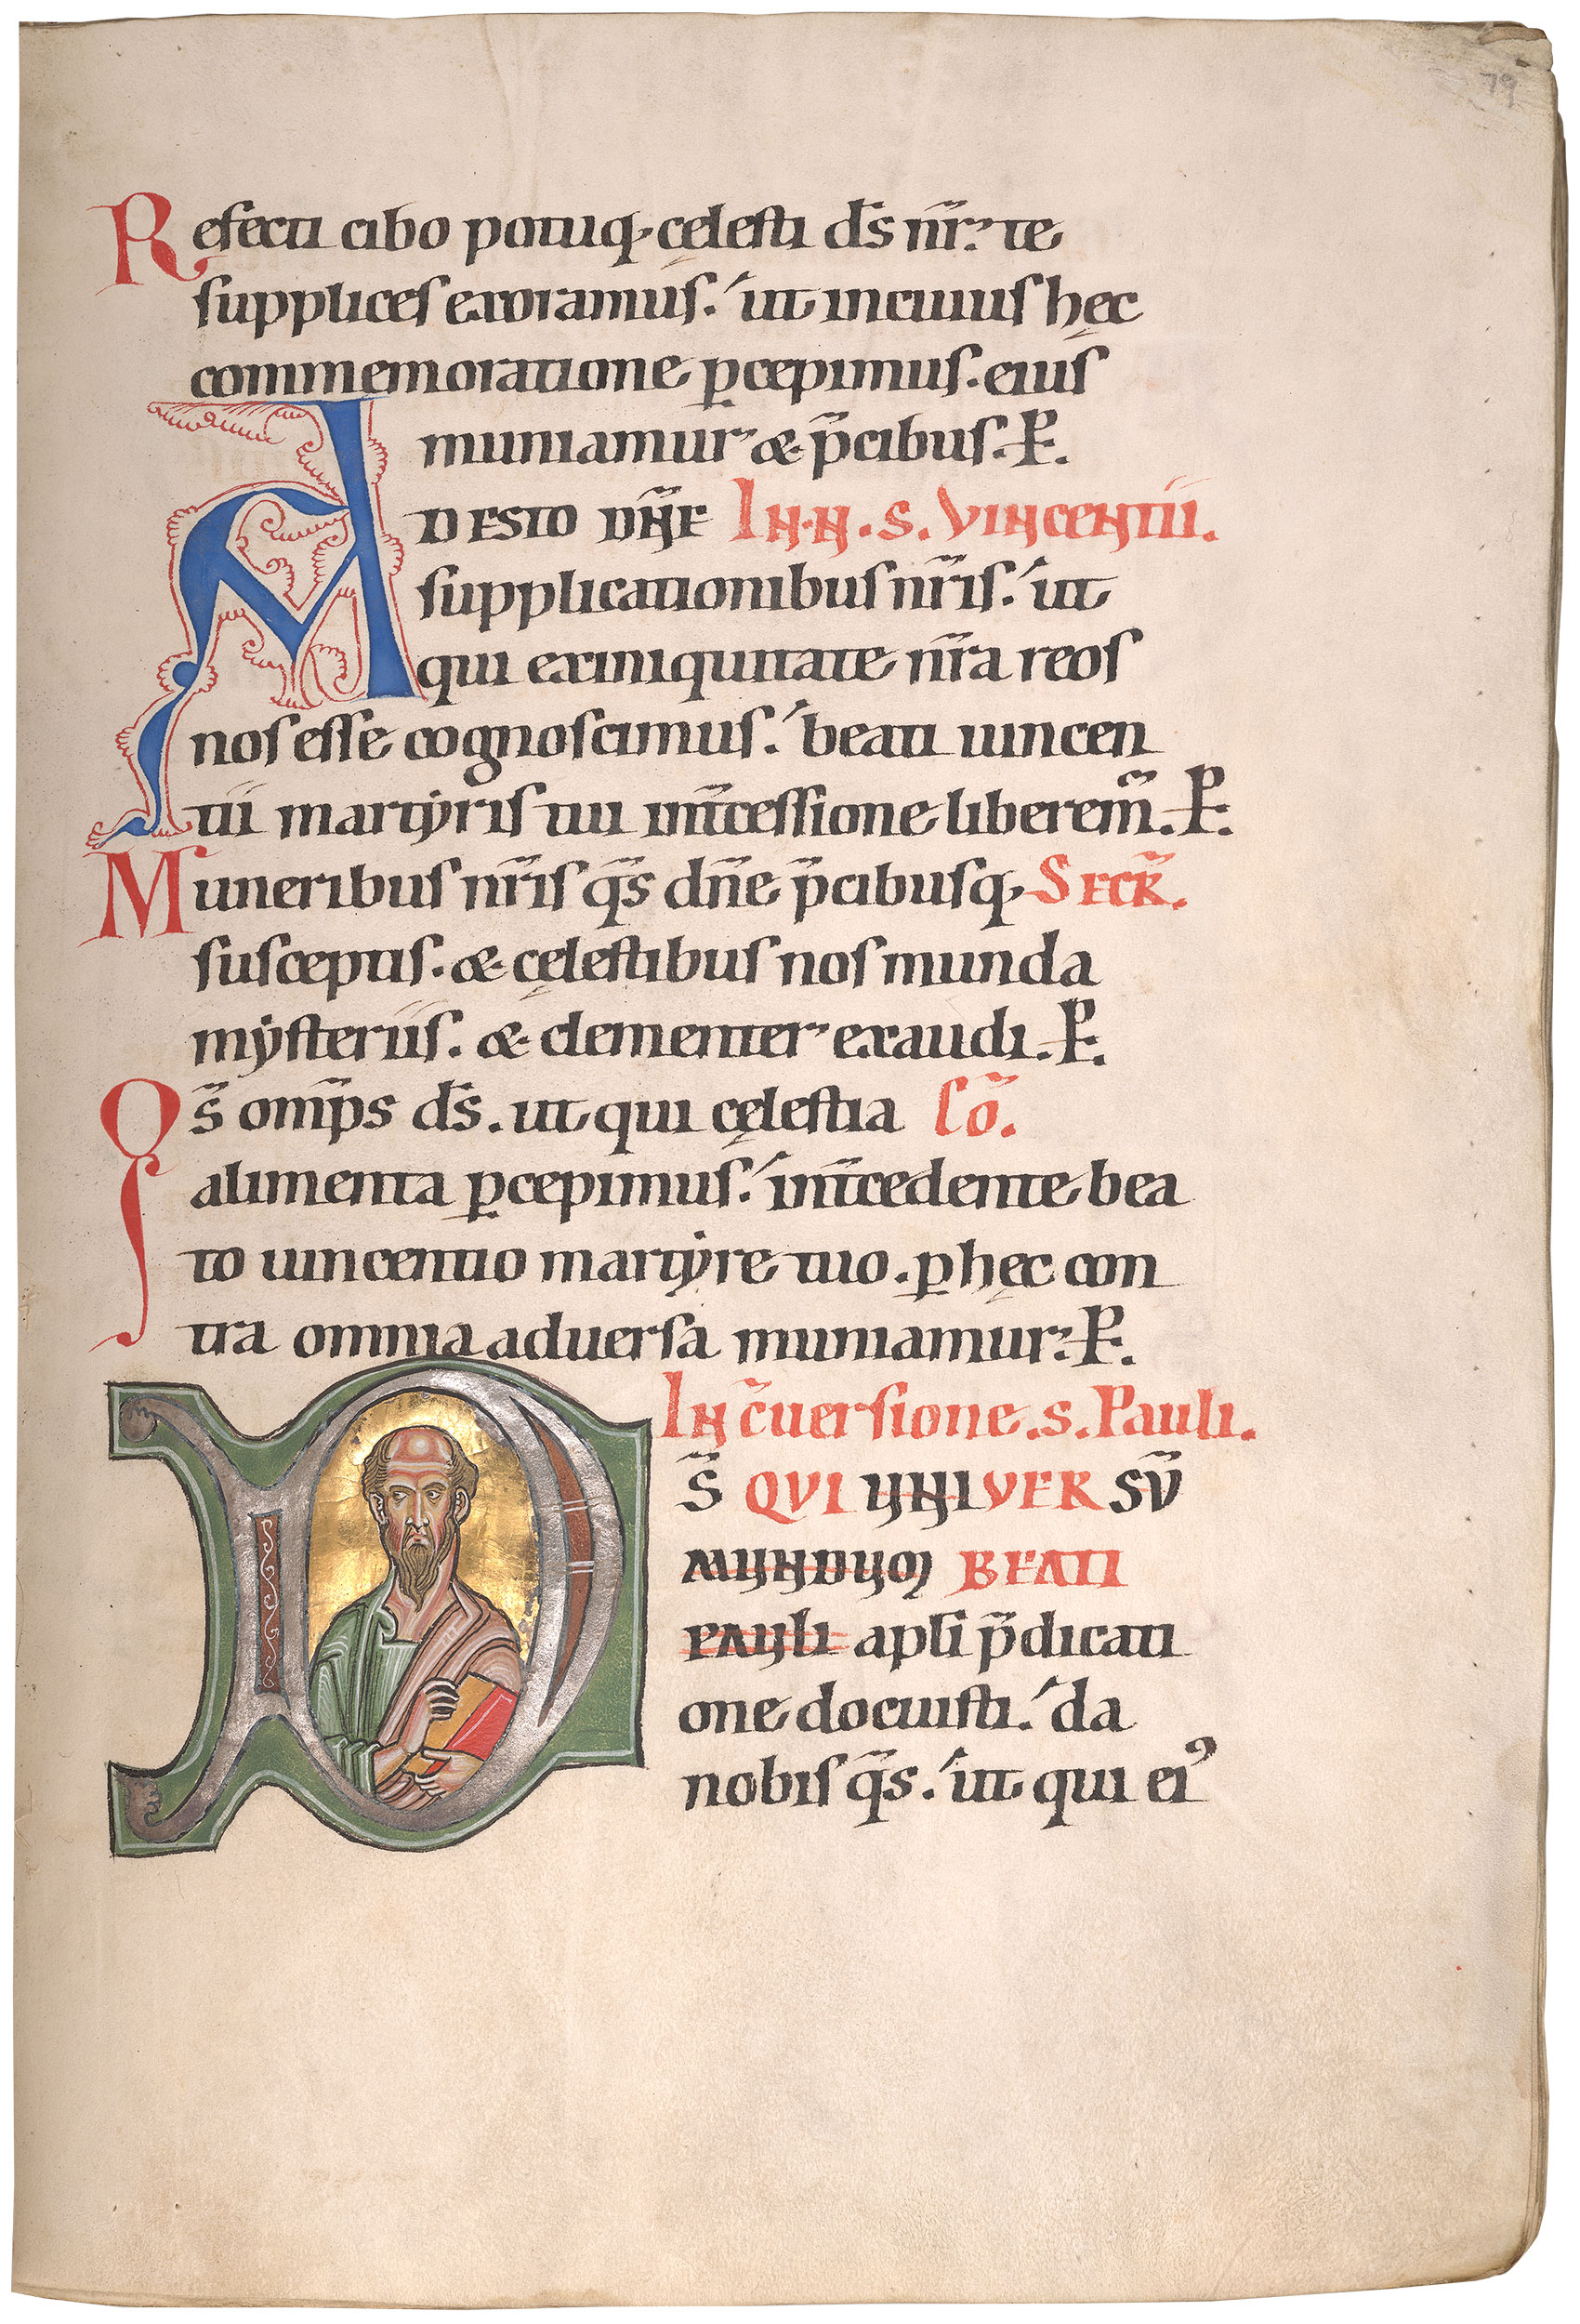 79
Refecti cibo potuq; cęlesti d̄s nr̄. te
supplices exoramus. ut in cuius hęc
commemoratione ꝑcepimus. eius
muniamur & p̄cibus. P.
ADESTO DN̄E IN.N.S. VINCENTII.
supplicationibus nr̄is. ut
qui ex iniquitate nr̄a reos
nos esse cognoscimus. beati uincen
tii martyris tui int̄cessione liberem̄. P.
Muneribus nr̄is q̄s dn̄e p̄cibusq; SECR̄.
susceptis. & cęlestibus nos munda
mysteriis. & clementer exaudi. P.
Qs̄ omp̄s d̄s. ut qui cęlestia Cō.
alimenta ꝑcepimus. int̄cedente bea
to uincentio martyre tuo. ꝑ hęc con
tra omnia aduersa muniamur. P.
IN c̄uersione .s. Pauli.
DS̄ QUI UNIVERSŪ
MUNDUM BEATI
PAULI apl̄i p̄dicati
one docuisti. da
nobis q̄s. ut qui ei᾿